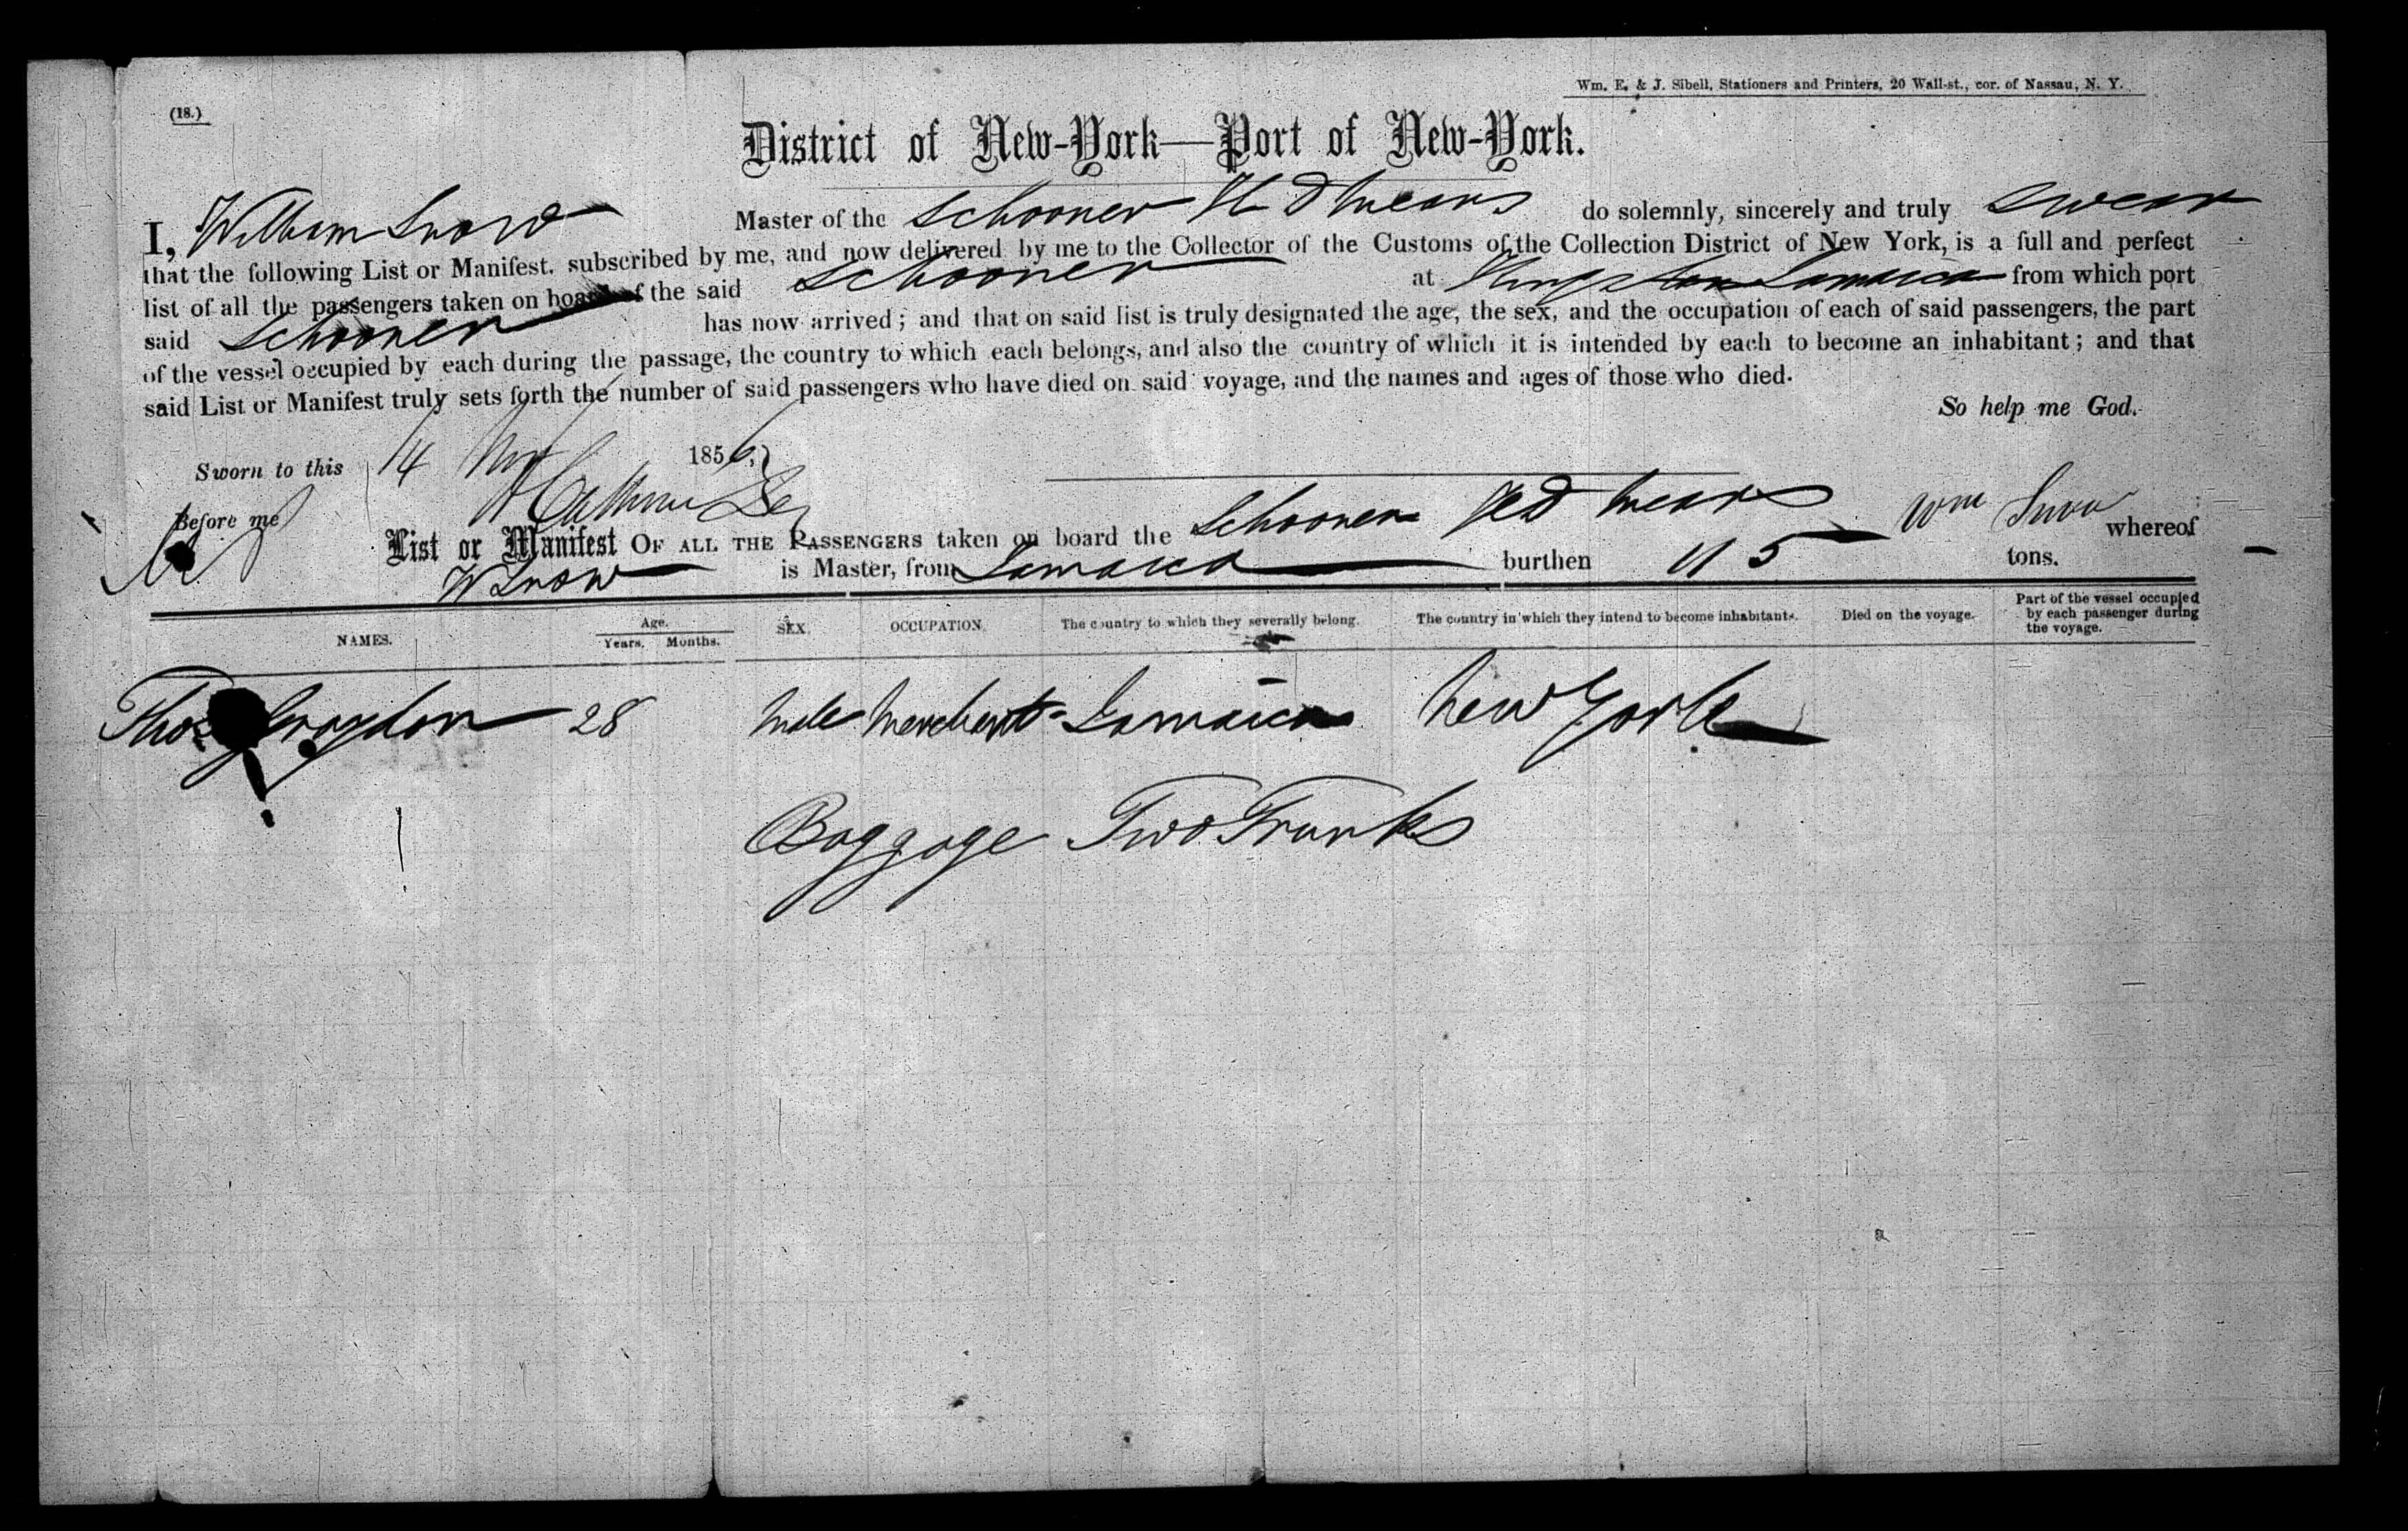 (18.)
Wm. E. & J. Sibell, Stationers and Printers, 20 Wall-st., cor. of Nassau, N. Y.
District of New-York—Port of New-York.
I, William Snow Master of the Schooner H D Mears do solemnly, sincerely and truly swear
that the following List or Manifest, subscribed by me, and now delivered by me to the Collector of the Customs of the Collection District of New York, is a full and perfect
list of all the passengers taken on board of the said Schooner at Kingston Jamaica from which port
said Schooner has now arrived; and that on said list is truly designated the age, the sex, and the occupation of each of said passengers, the part
of the vessel occupied by each during the passage, the country to which each belongs, and also the country of which it is intended by each to become an inhabitant; and that
said List or Manifest truly sets forth the number of said passengers who have died on said voyage, and the names and ages of those who died.
So help me God.
Sworn to this 14 1856,
Before me
Wm Snow
List or Manifest OF ALL THE PASSENGERS taken on board the Schooner H D Mears whereof
W Snow is Master, from Jamaica burthen 115 tons.
NAMES. Age. Years. Months. SEX. OCCUPATION. The country to which they severally belong. The country in which they intend to become inhabitants. Died on the voyage. Part of the vessel occupied by each passenger during the voyage.
Thos 28 Male Merchant Jamaica New York
Baggage Two Trunks